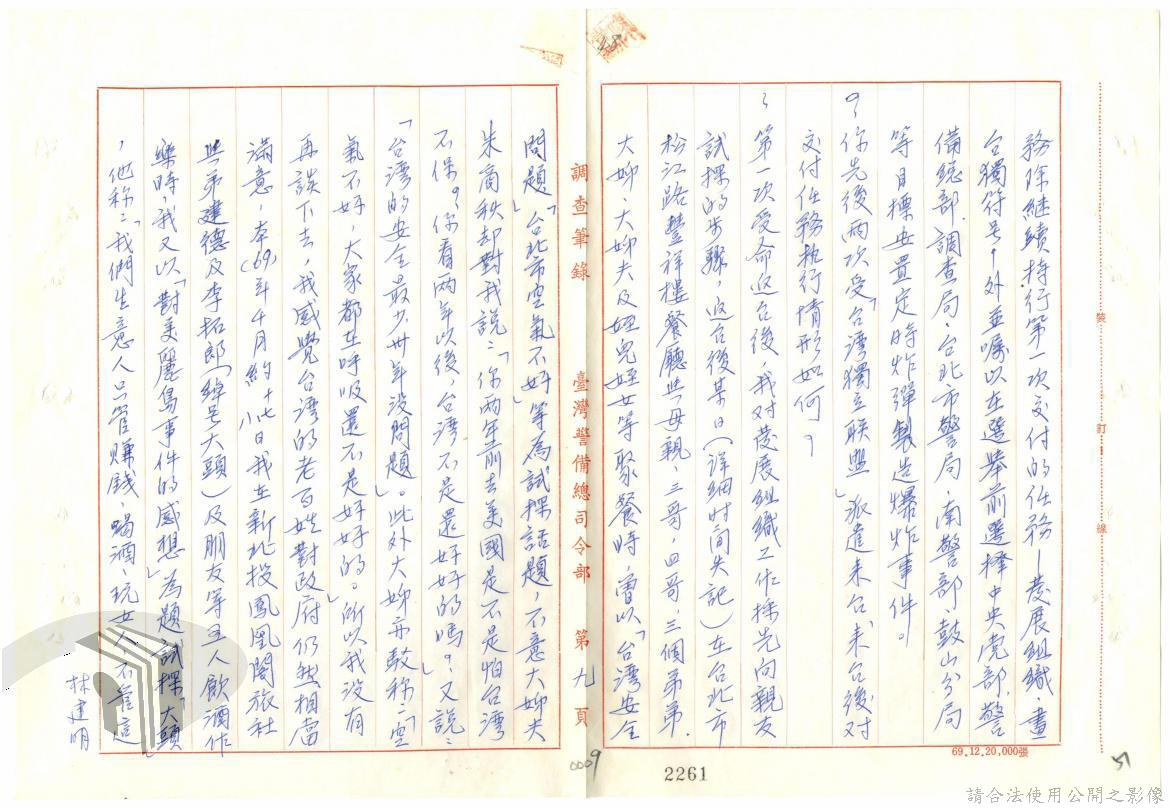 務除継續持行第一次交付的任務—發展組織、畫
台獨符号,外並囑以在選举前選择中央党部、警
備總部、調查局、台北市警局、南警部、鼓山分局
等目標安置定時炸彈製造爆炸事件。
你先後兩次受「台湾獨立联盟」派遣来台,来台後对
交付任務执行情形如何?
第一次受命返台後,我对發展組織工作採先向親友
試探的步驟,返台後某日(详细时间失記)在台北市
松江路豐祥樓餐廳與母親、三哥、四哥、三個弟弟、
大姊、大姊夫及姪兒姪女等聚餐時,曾以「台湾安全
調查筆錄 臺灣警備總司令部 第九頁
問題」「台北市空氣不好」等為試探話題,不意大姊夫
朱商秩却對我說:「你两年前去美國是不是怕台湾
不保?你看两年以後,台湾不是還好好的嗎?」又說:
「台湾的安全最少卅年没問題」。此外大姊亦敎称:「空
氣不好,大家都在呼吸還不是好好的。」所以我没有
再談下去,我感覺台湾的老百姓對政府仍然相當
滿意,本(69)年4月約十七八日我在新北投鳳凰閣旅社
與弟建德及李拓郎(綽号大頭)及朋友等五人飲酒作
樂時,我又以「對美麗島事件的感想」為題試探「大頭」
,他称:「我們生意人只管赚錢、喝酒、玩女人,不管這
林建明
裝 訂 線
69.12.20,000張
0009
2261
51
請合法使用公開之影像